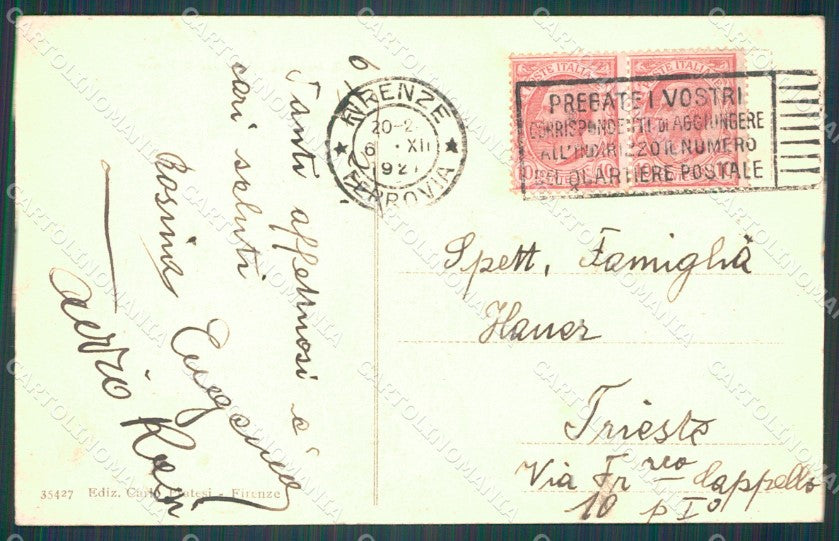 Tanti affettuosi e
cari saluti
Rosina Eugenia
FIRENZE
FERROVIA
20-2
6 · XII
192
POSTE ITALIANE
POSTE ITALIANE
PREGATE I VOSTRI
CORRISPONDENTI DI AGGIUNGERE
ALL'INDIRIZZO IL NUMERO
DEL QUARTIERE POSTALE
Spett. Famiglia
Hauer
Trieste
Via Fr.reo Cappello
10 p I°
35427 Ediz. Carlo - Firenze
CARTOLINOMANIA